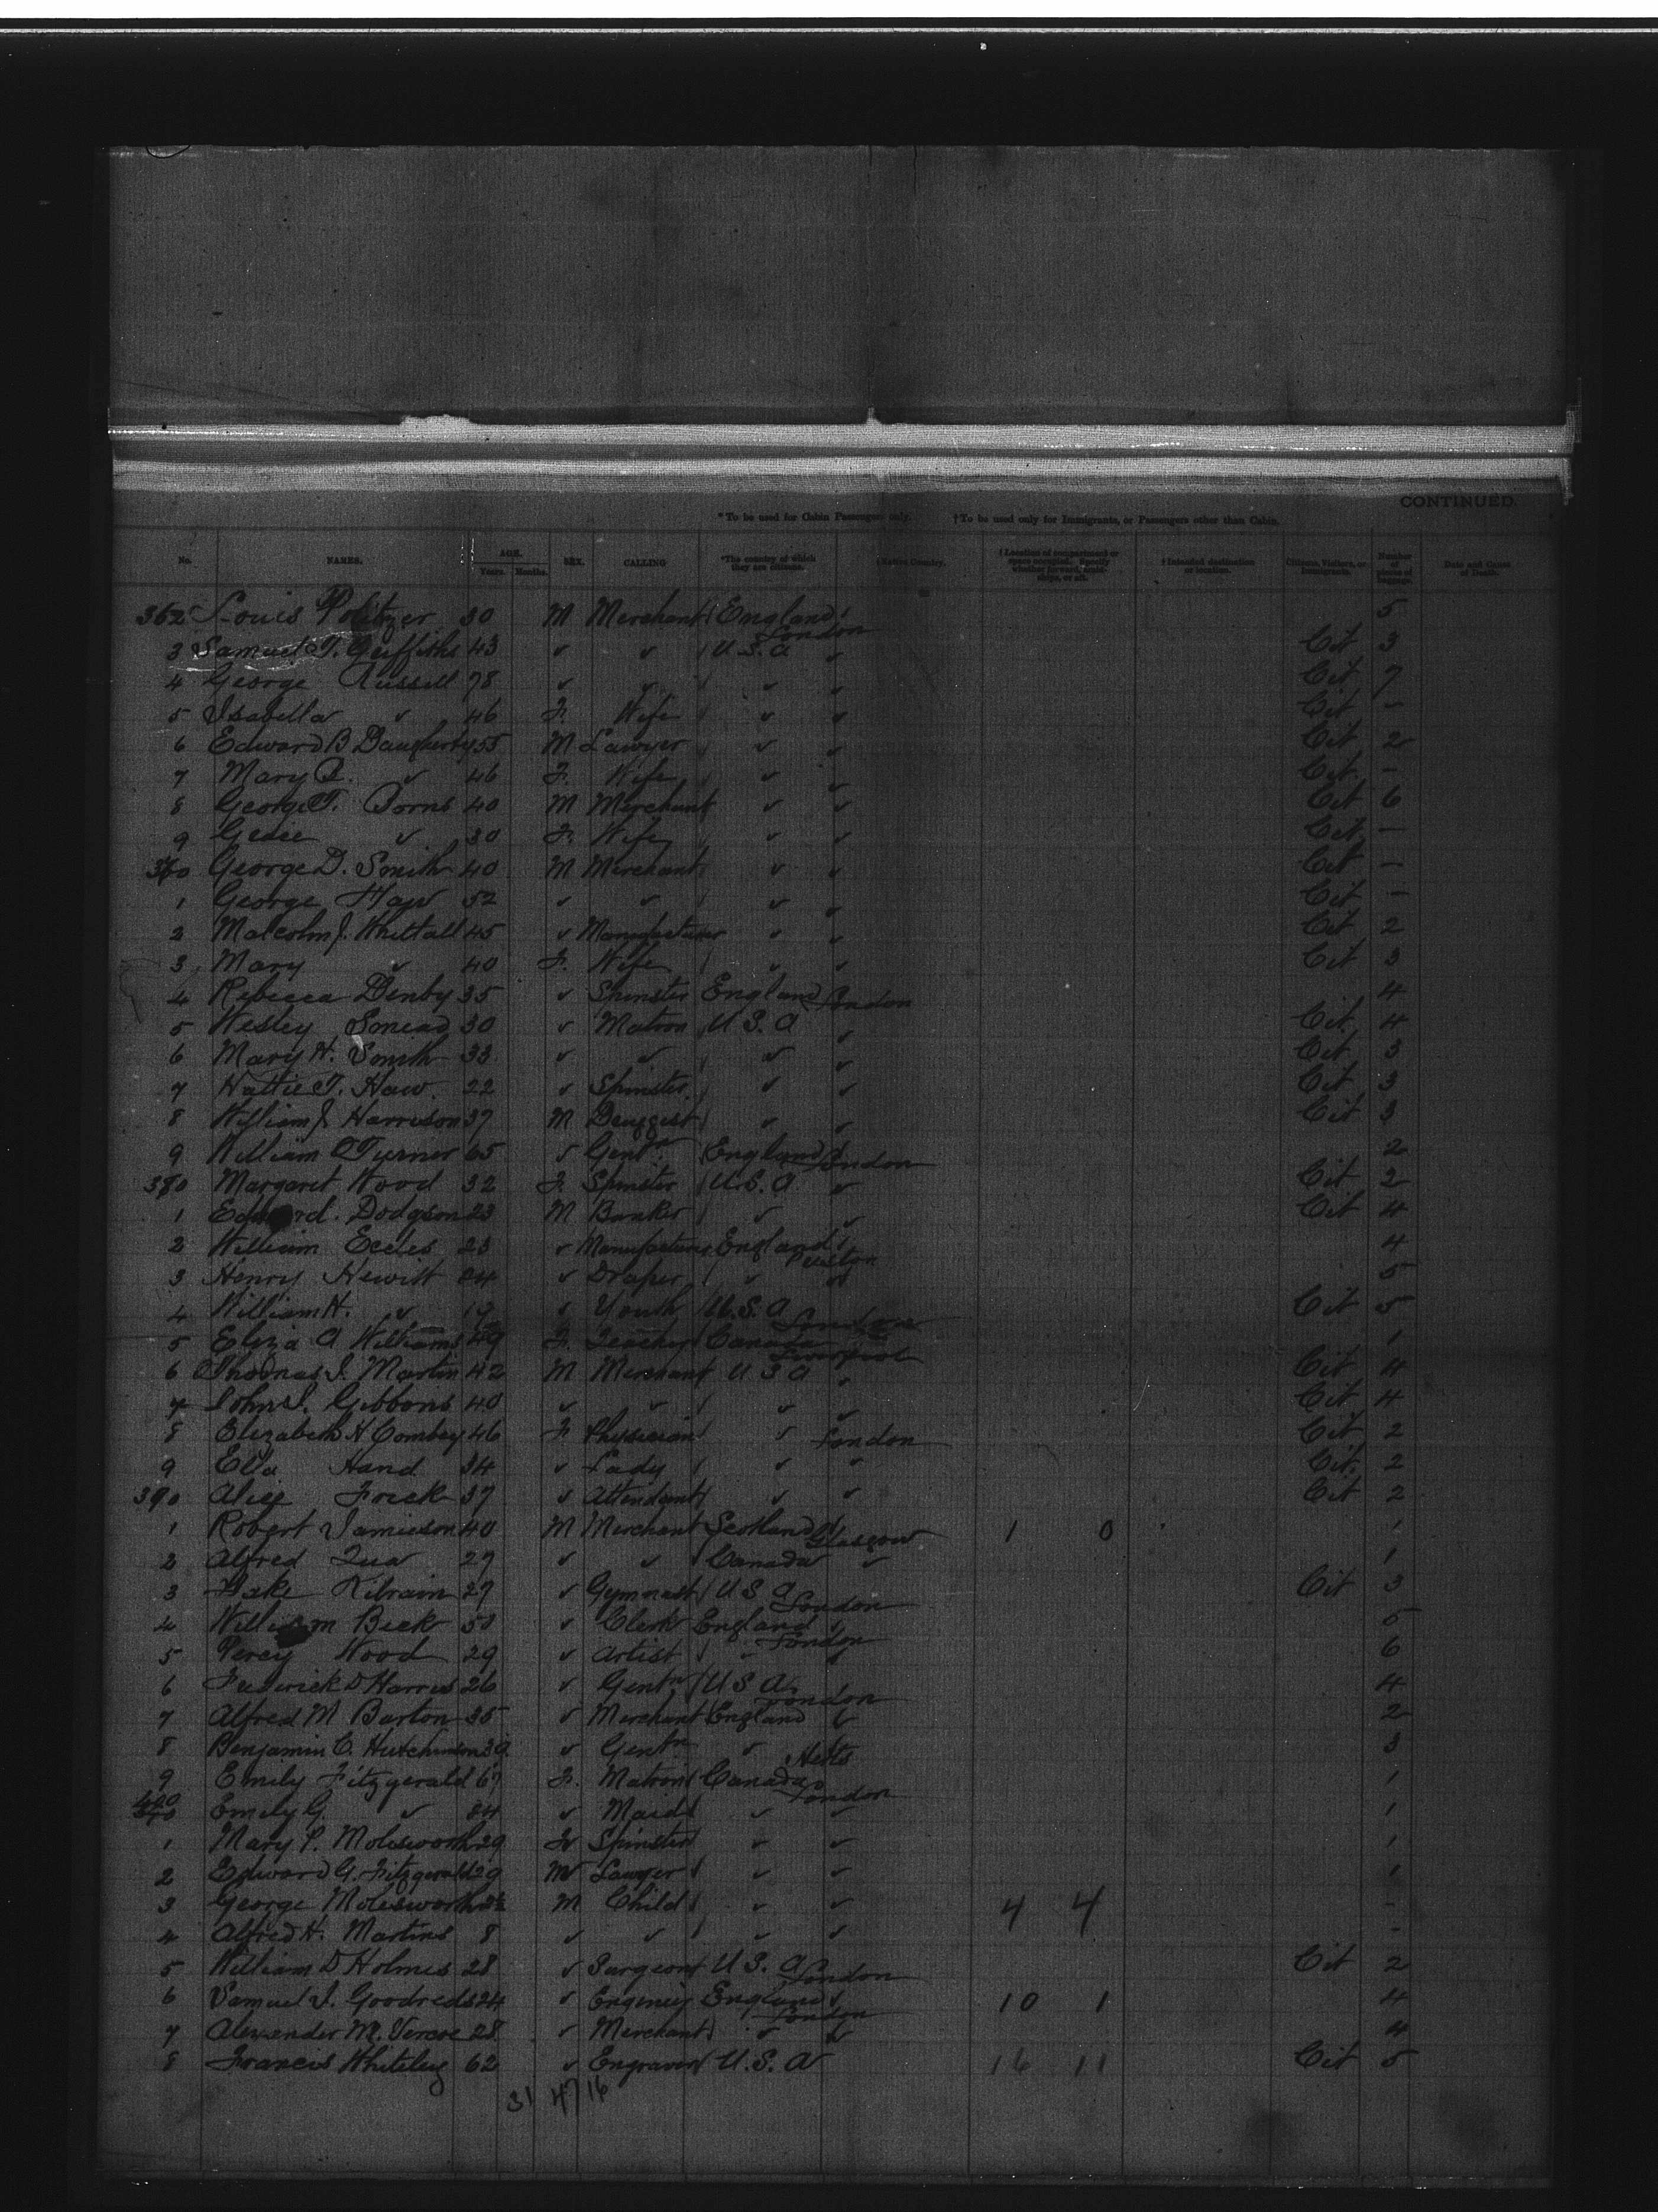 CONTINUED.
*To be used for Cabin Passengers only. †To be used only for Immigrants, or Passengers other than Cabin.
No. NAMES. AGE. Years. Months. SEX. CALLING *The country of which they are citizens. †Native Country. †Location of compartment or space occupied. Specify whether forward, amidships, or aft. †Intended destination or location. Citizens, Visitors, or Immigrants. Number of pieces of baggage. Date and Cause of Death.
362 Louis Politzer 30 M Merchant England London 5
3 Samuel T. Griffiths 43 " " U.S.A " Cit 3
4 George Russell 78 " " " " Cit 7
5 Isabella " 46 F. Wife " " Cit -
6 Edward B Daugherty 55 M Lawyer " " Cit 2
7 Mary " 46 F. Wife " " Cit -
8 George T. 40 M Merchant " " Cit 6
9 " 30 F. Wife " " Cit -
George D. Smith 40 M Merchant " " Cit -
1 George Haw 52 " " " " Cit -
2 Malcolm J. Whittall 45 " Manufacturer " " Cit 2
3 Mary " 40 F. Wife " " Cit 3
4 Rebecca Denby 35 " Spinster England London 4
5 Wesley Smead 30 " Matron U.S.A " Cit 4
6 Mary H. Smith 33 " " " " Cit 3
7 Hattie T. Haw 22 " Spinster " " Cit 3
8 William J Harrison 37 M Druggist " " Cit 3
9 William Turner 65 " Gentn England London 2
380 Margaret Wood 32 F. Spinster U.S.A " Cit 2
1 Edward Dodgson 23 M Banker " " Cit 4
2 William Eccles 23 " Manufacturer England Preston 4
3 Henry Hewitt " Draper " " 5
4 William H. " " Youth U.S.A London Cit 5
5 Eliza A Williams 49 F. Teacher Canada Liverpool 1
6 Thomas J. Martin 42 M Merchant U S A " Cit 4
7 John J. Gibbons 40 " " " " Cit 4
8 Elizabeth H 46 F Physician " London Cit 2
9 Ella Hand 34 " Lady " " Cit. 2
390 Alice Frick 37 " Attendant " " Cit 2
1 Robert Jamieson 40 M Merchant Scotland Glasgow 1 0 1
2 Alfred 29 " " Canada " 1
3 Jake Kilrain 29 " Gymnast U S A London Cit 3
4 William Beck 53 " Clerk England London 5
5 Percy Wood 29 " Artist " " 6
6 Frederick D Harris 26 " Gentn U S A London 4
7 Alfred M Barton 35 " Merchant England " 2
8 Benjamin C. Hutchinson 39 " Gentn " Herts 3
9 Emily Fitzgerald 67 F. Matron Canada London 1
400 Emily G. " " Maid " " 1
1 Mary P. Molesworth 29 F Spinster " " 1
2 Edward G. Fitzgerald 29 M Lawyer " " 1
3 George Molesworth M Child " " 4 4 -
4 Alfred H. Martins 8 " " " " -
5 William D Holmes 28 " Surgeon U.S.A London Cit 2
6 Samuel J. 24 " Engineer England London 10 1 4
7 Alexander 28 " Merchant " " 4
8 Francis Whiteley 62 " Engraver U.S.A 16 11 Cit 5
31 47 16